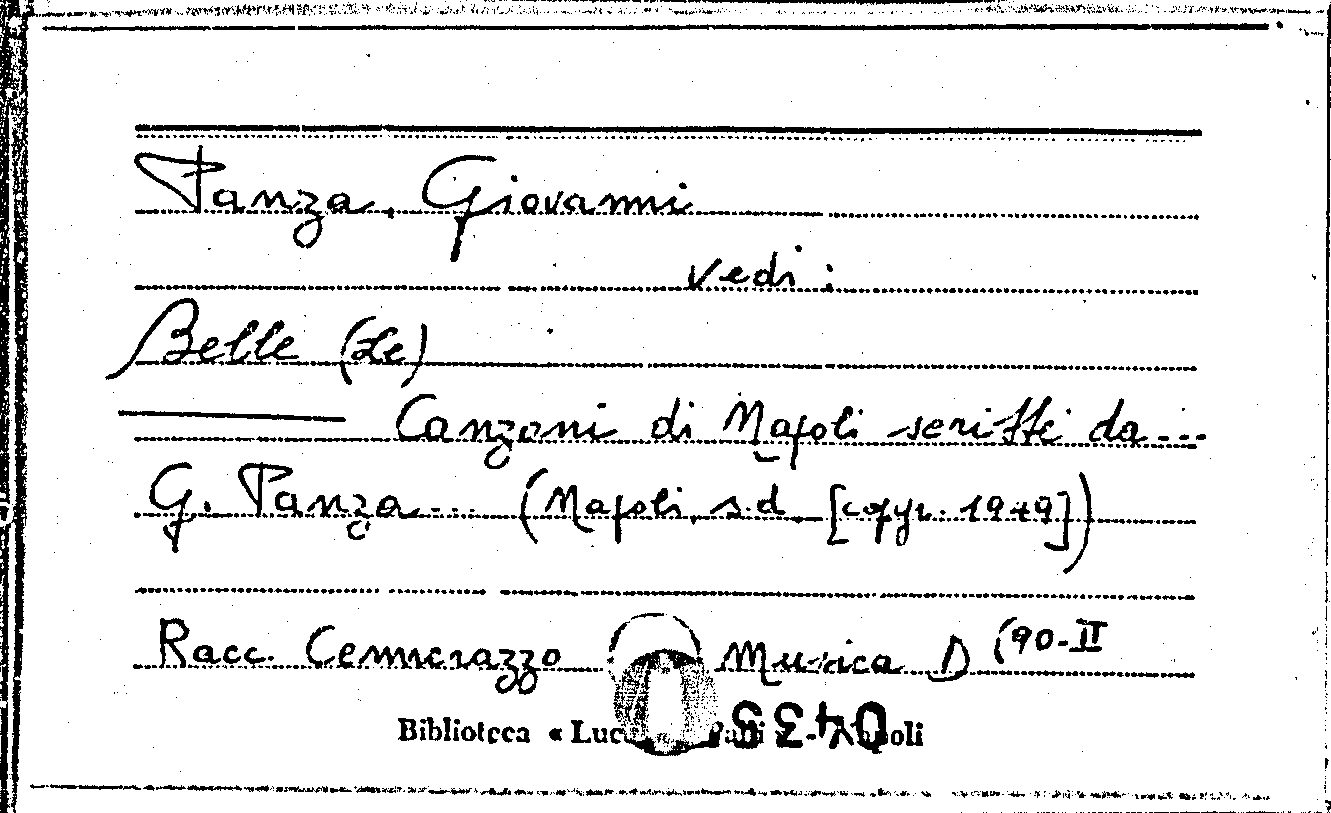 Panza, Giovanni
vedi:
Belle (Le)
Canzoni di Napoli scritte da...
G. Panza... (Napoli, s.d. [copyr. 1949])
Racc. Cennerazzo Musica D (90-II
Biblioteca «